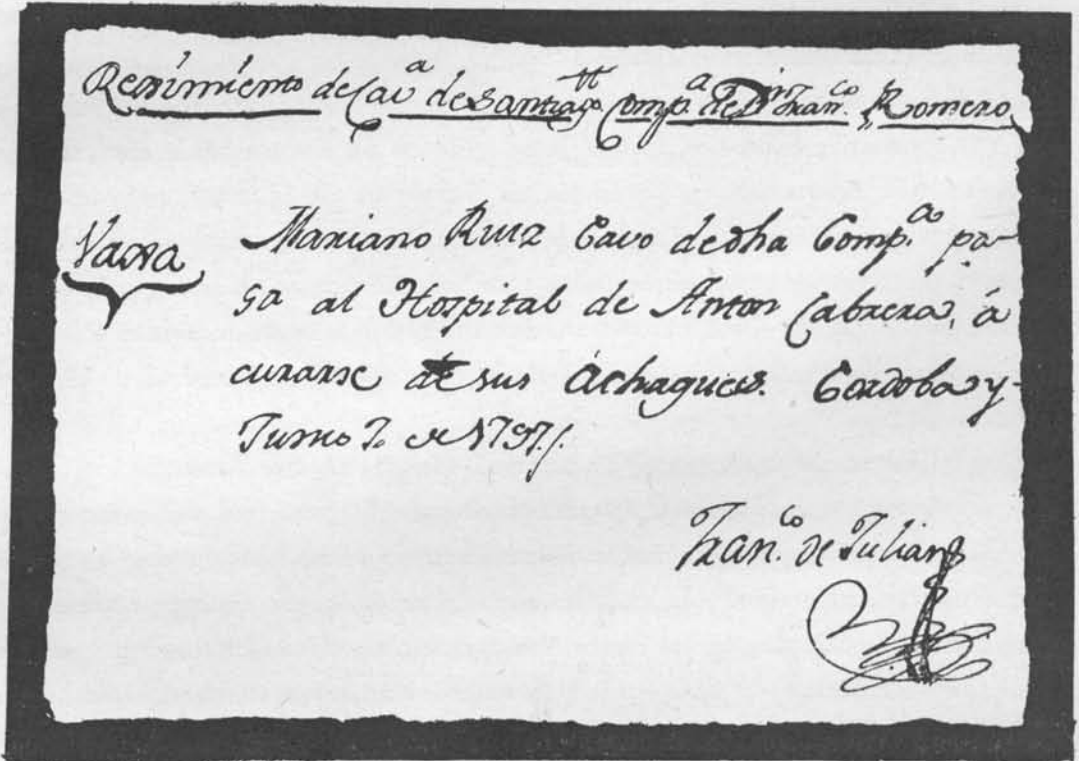 Reximiento de Cav.ª de Santiago Comp.ª de Dⁿ Fran.co Romero
Vaxa
Mariano Ruiz Cavo de dha Comp.ª pa-
sa al Hospital de Anton Cabrera, á
curarse de sus áchaques. Cordoba y
Junio 7. de 1797.
Fran.co de Julian